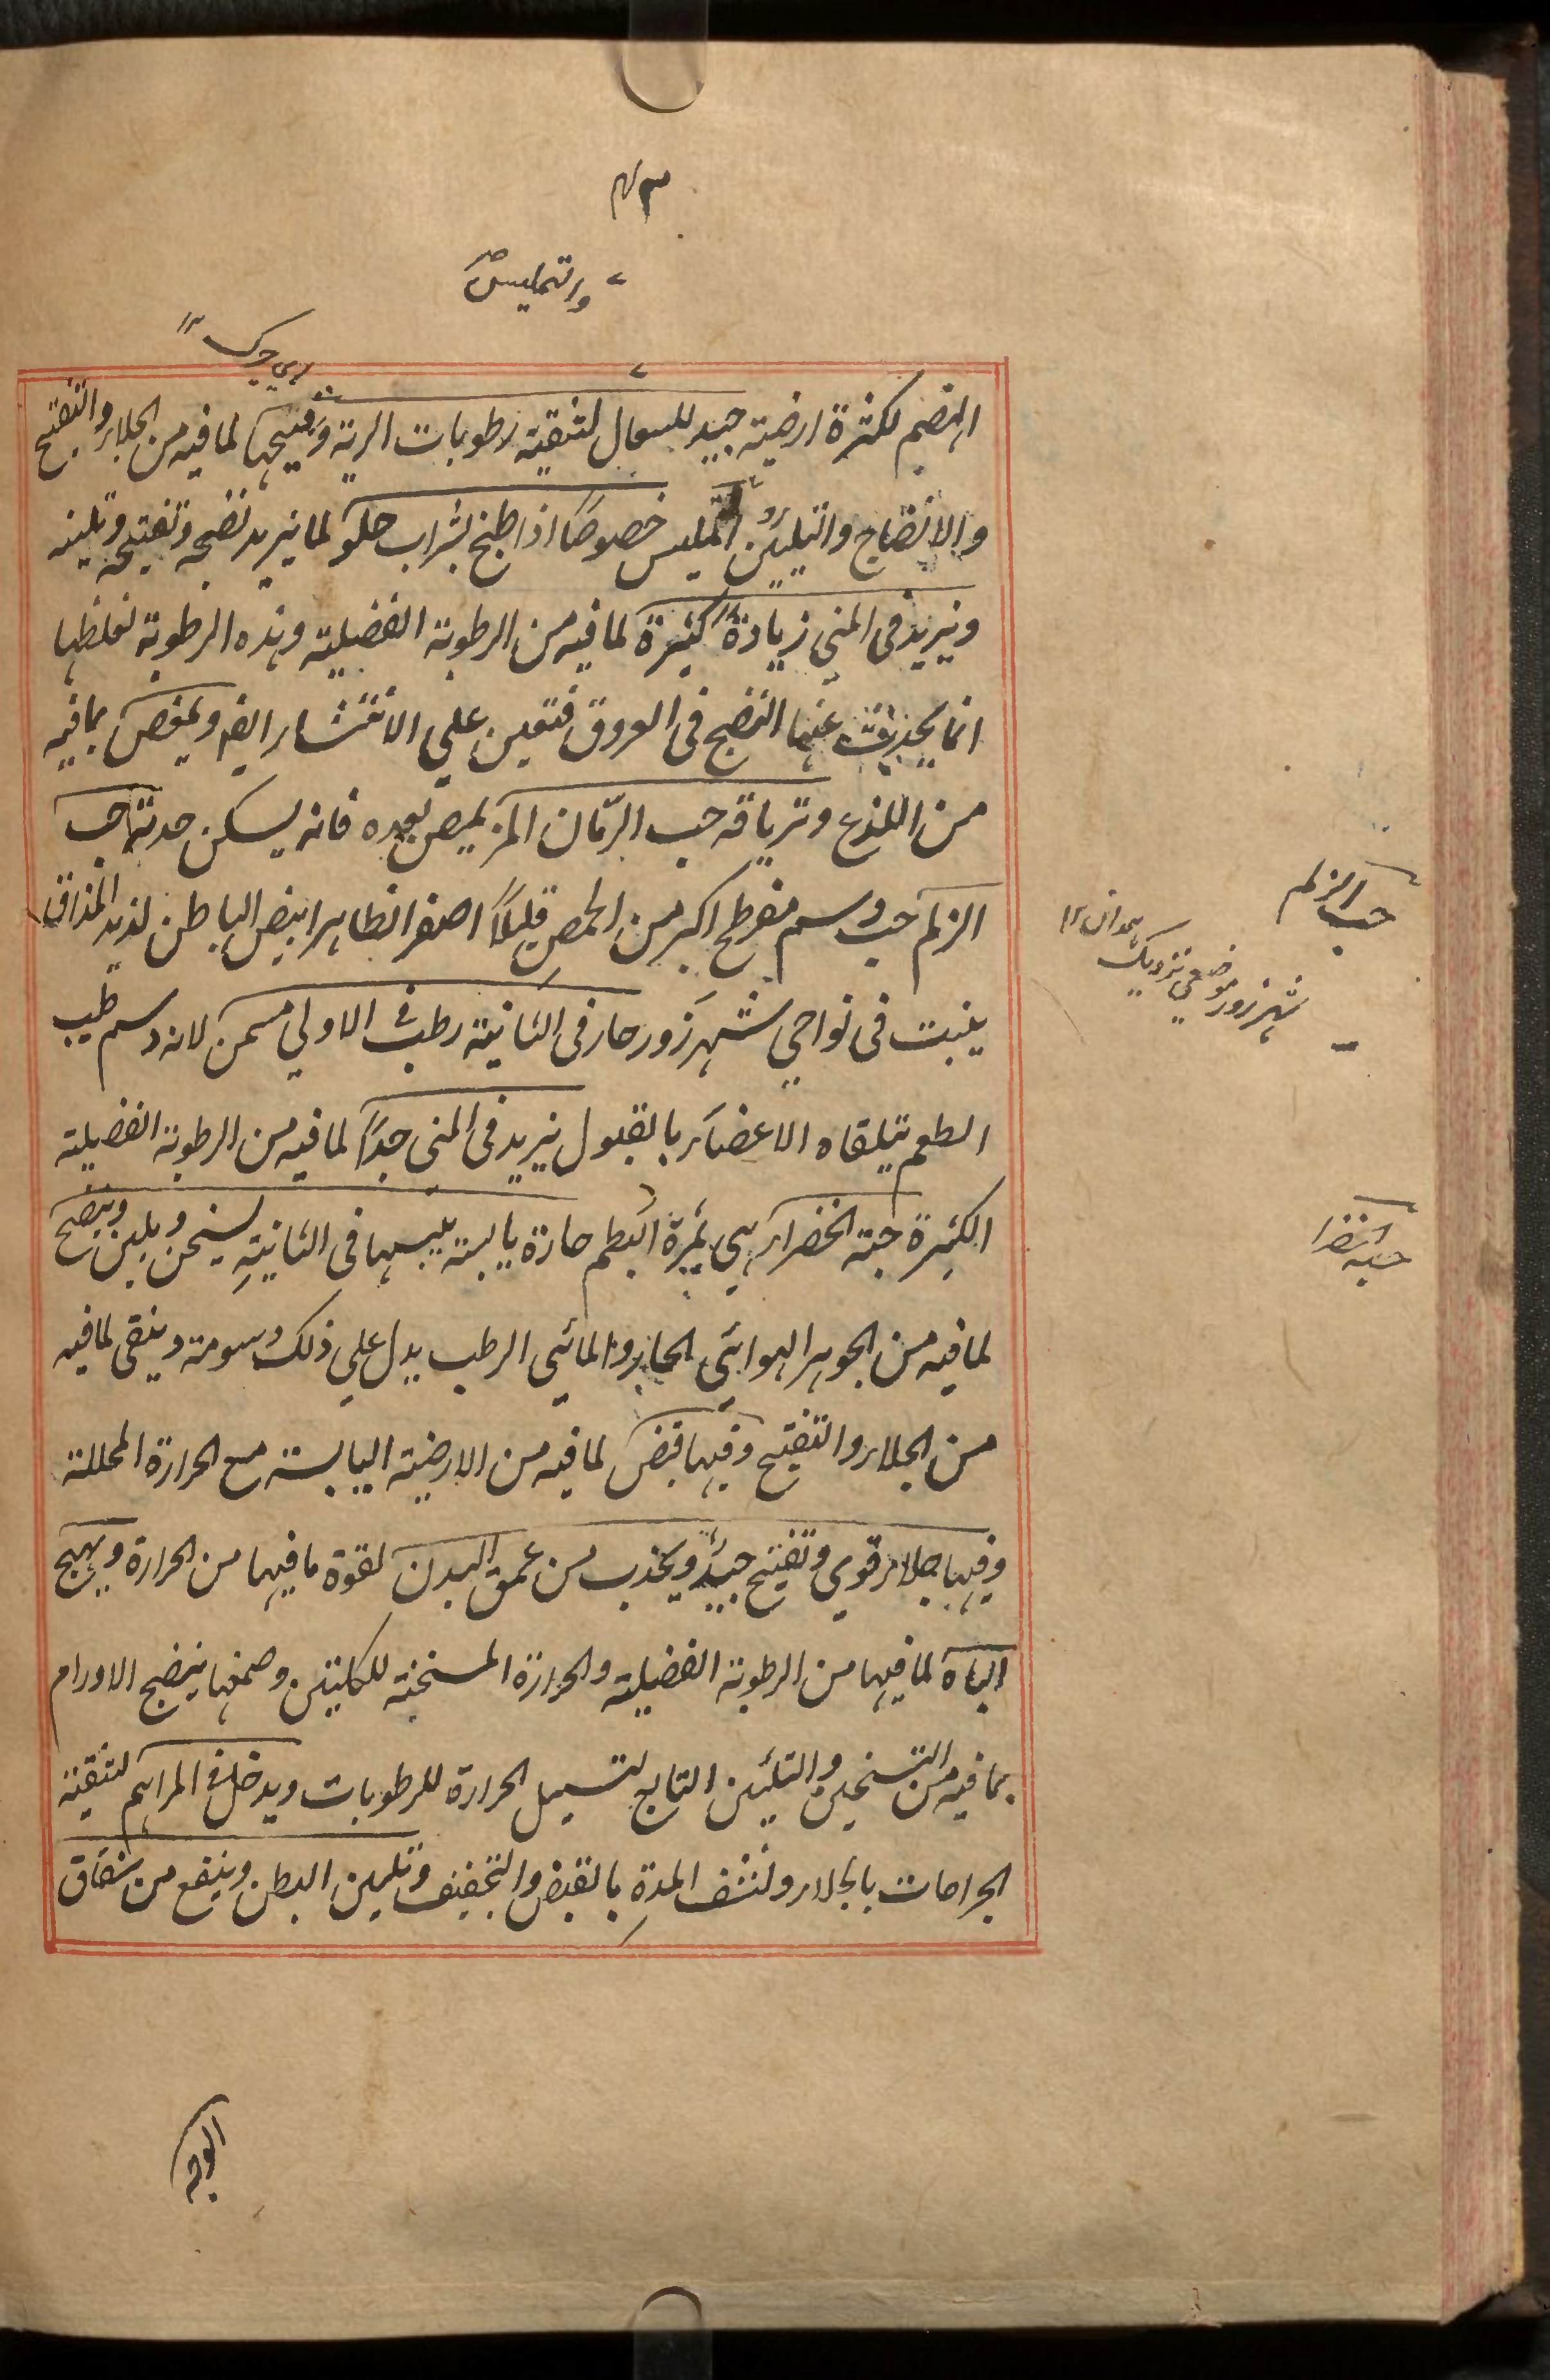 والتمليس صح
اي چرک
الهضم لكثرة ارضيته جيد للسعال لتنقية رطوبات الرية وقيحها لما فيه من الجلاء والتفتيح
والانضاج والتليين والتمليس خصوصًا اذا طبخ بشراب حلو لما يزيد نضجه وتفتيحه وتليينه
ويزيد فى المني زيادة كثيرة لما فيه من الرطوبة الفضلية وهذه الرطوبة لغلظها
انما يحدث عنها النضج فى العروق فتعين علي الانتشار ايضا ويمغص بما فيه
من اللذع وترياقه حب الرمّان المز يمص بعده فانه يسكن حدته حب
الزلم حب دسم مفرطح اكبر من الحمص قليلًا اصفر الظاهر ابيض الباطن لذيذ المذاق
ينبت فى نواحي شهرزور حار فى الثانية رطب فى الاولي مسمن لانه دسم طيب
الطعم يتلقاه الاعضاء بالقبول يزيد فى المنى جدًا لما فيه من الرطوبة الفضلية
الكثيرة حبة الخضراء هي ثمرة البطم حارة يابسة يبسها فى الثانية يسخن ويلين وينضج
لما فيه من الجوهر الهوائي الحار والمائي الرطب يدل علي ذلك دسومته وينقى لما فيه
من الجلاء والتفتيح وفيها قبض لما فيه من الارضية اليابسة مع الحرارة المحللة
وفيها جلاء قوي وتفتيح جيد ويجذب من عمق البدن لقوة ما فيها من الحرارة ويهيج
الباه لما فيها من الرطوبة الفضلية والحرارة المسخنة للكليتين وصمغها ينضج الاورام
بما فيه من التسخين والتليين التابع لتسييل الحرارة للرطوبات ويدخل فى المراهم لتنقية
الجراحات بالجلاء ونشف المدة بالقبض والتجفيف وتلين البطن وينفع من شقاق
حب الزلم
شهرزور موضعي نزديک همدان ١٢
حبة الخضرا
الوجه